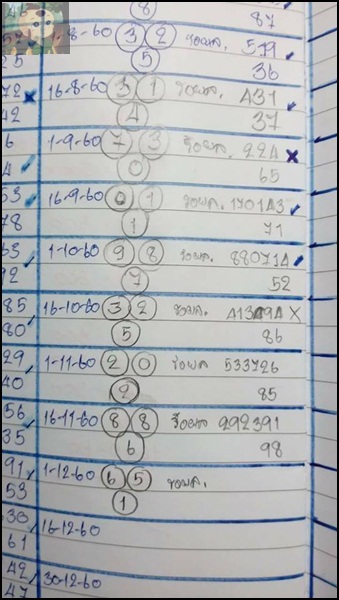 8 87
-8-60 3 2 รอผล. 519
25 5 36
72 x 16-8-60 3 1 รอผล. 431
42 4 37
6 1-9-60 7 3 รอผล. 224 x
4 0 65
53 16-9-60 0 1 รอผล. 170143
78 1 71
63 1-10-60 9 8 รอผล. 880714
92 7 52
85 16-10-60 3 2 รอผล. x
80 5 86
29 1-11-60 2 0 รอผล 533726
40 2 85
56 16-11-60 8 8 รอผล 292391
35 6 98
91 1-12-60 6 5 รอผล.
53 1
30 16-12-60
61
42 30-12-60
47